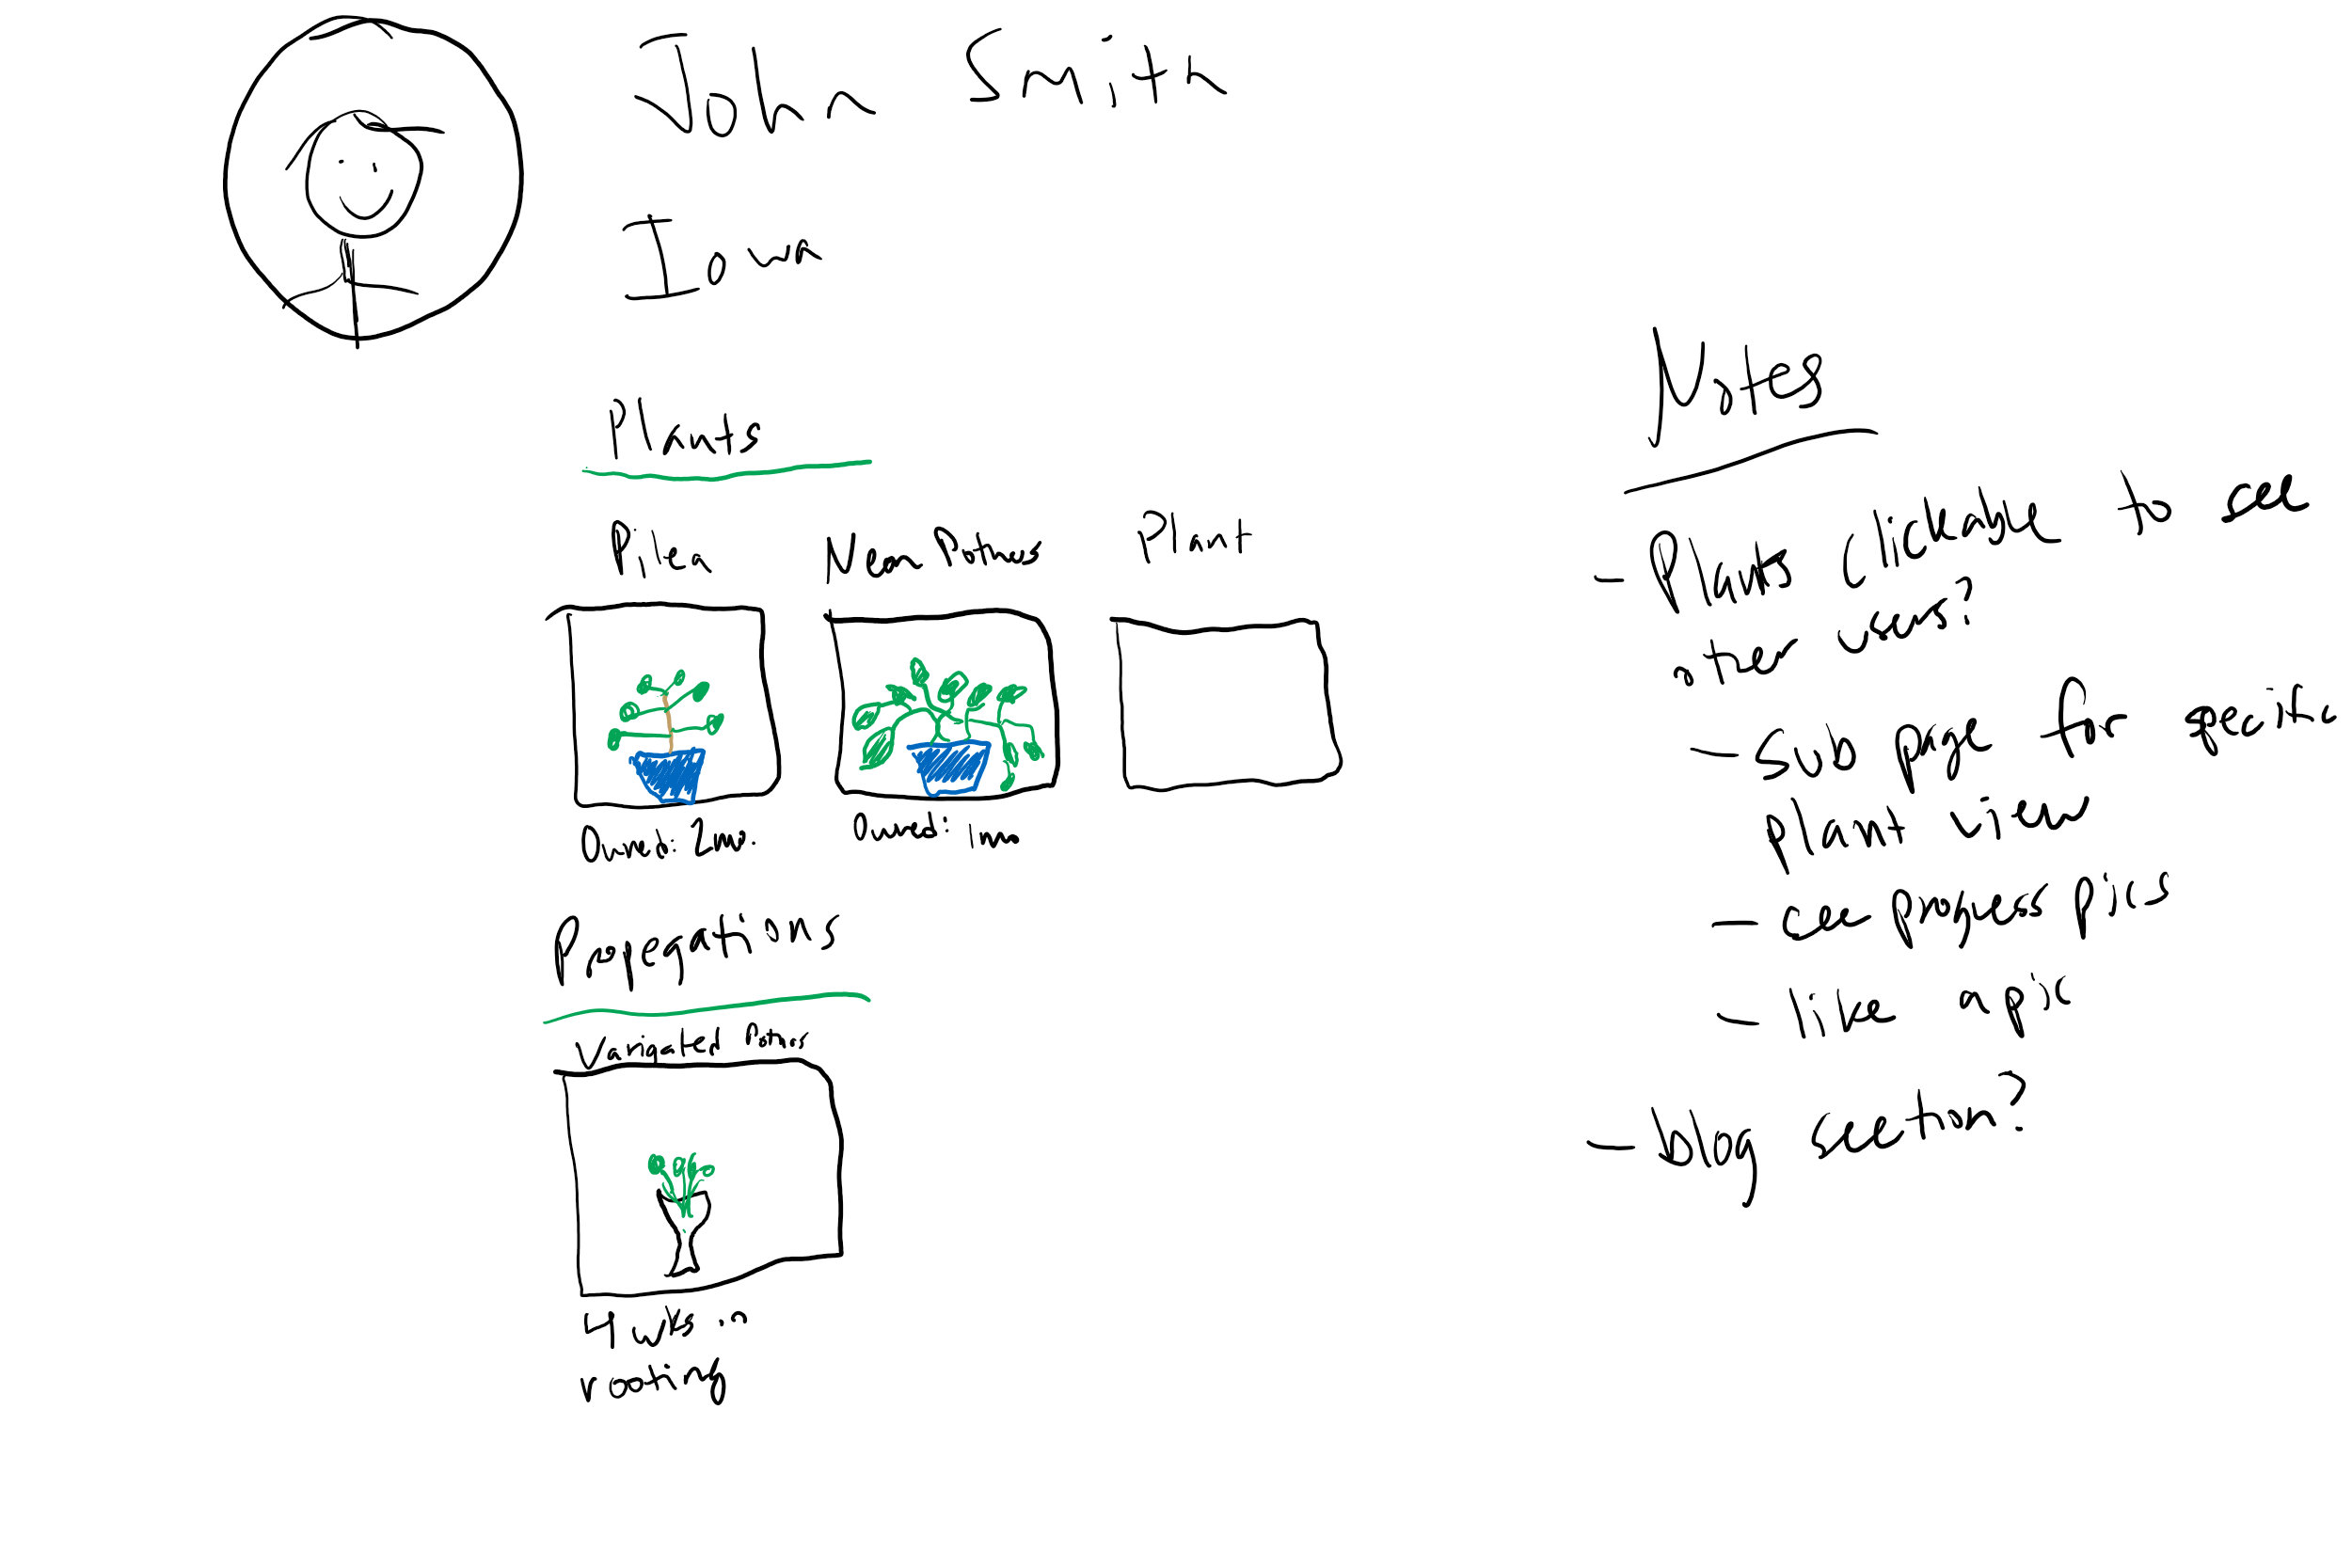 John Smith
Iowa
Plants
Pilea
Neon Pothos
Plant
Owned: 2mo.
Owned: 1mo
Propegations
Varigated Pothos
4 wks in
rooting
Notes
- Plants clickable to see
other users?
- Sub page for specific
plant view
- see progress pics
- like a pic
- blog section?